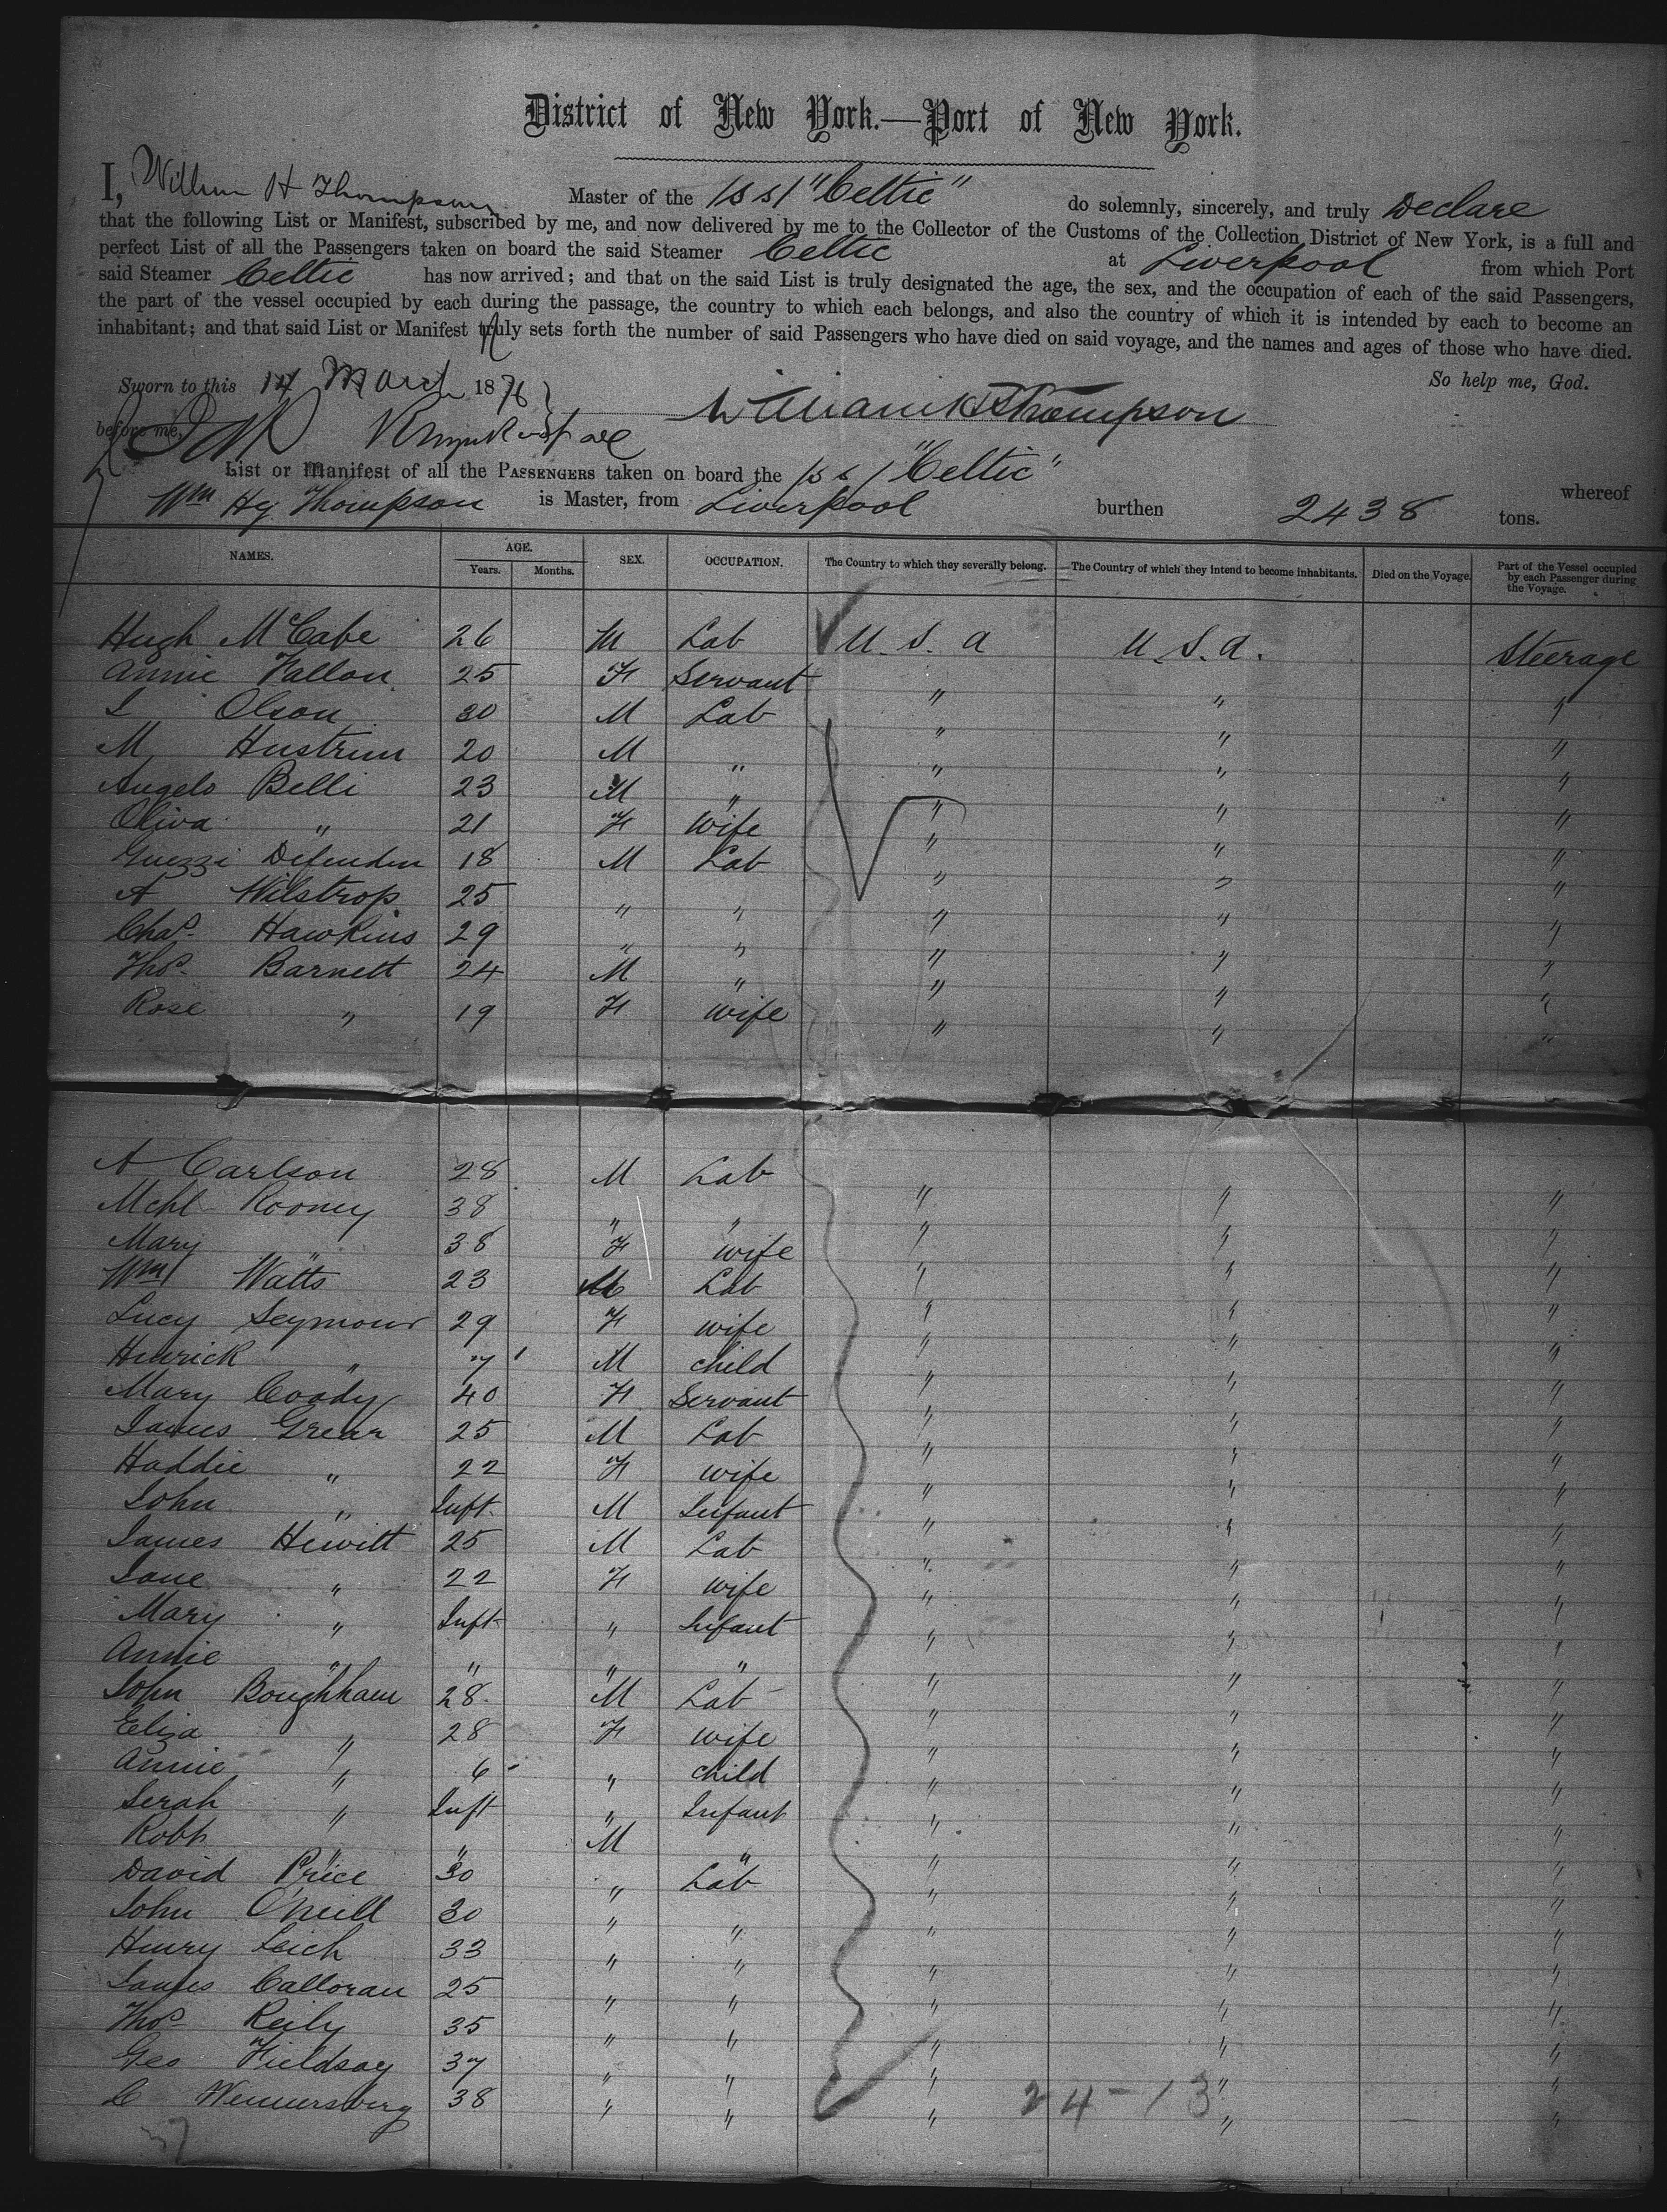 District of New York.—Port of New York.
I, William H Thompson Master of the /s s/ "Celtic" do solemnly, sincerely, and truly Declare
that the following List or Manifest, subscribed by me, and now delivered by me to the Collector of the Customs of the Collection District of New York, is a full and
perfect List of all the Passengers taken on board the said Steamer Celtic at Liverpool from which Port
said Steamer Celtic has now arrived; and that on the said List is truly designated the age, the sex, and the occupation of each of the said Passengers,
the part of the vessel occupied by each during the passage, the country to which each belongs, and also the country of which it is intended by each to become an
inhabitant; and that said List or Manifest truly sets forth the number of said Passengers who have died on said voyage, and the names and ages of those who have died.
So help me, God.
Sworn to this 14 March 1876
before me,
William H Thompson
List or Manifest of all the PASSENGERS taken on board the /s s/ "Celtic" whereof
Wm Hy Thompson is Master, from Liverpool burthen 2438 tons.
NAMES. AGE. SEX. OCCUPATION. The Country to which they severally belong. The Country of which they intend to become inhabitants. Died on the Voyage. Part of the Vessel occupied by each Passenger during the Voyage.
Years. Months.
Hugh McCabe 26 M Lab U.S.a U.S.a. Steerage
Annie Fallon 25 F Servant " " "
I Olson 30 M Lab " " "
M Hustrum 20 M " " " "
Angelo Belli 23 M " " " "
Oliva " 21 F Wife " " "
Guezzi Difendin 18 M Lab " " "
A Wilstrop 25 " " " " "
Chas. Hawkins 29 " " " " "
Thos. Barnett 24 M " " " "
Rose " 19 F wife " " "
A Carlson 28 M Lab " " "
Mchl Rooney 38 " " " " "
Mary " 38 F wife " " "
Wm Watts 23 M Lab " " "
Lucy Seymour 29 F wife " " "
Hinrick " 7 M child " " "
Mary Coody 40 F Servant " " "
James Grear 25 M Lab " " "
Haddie " 22 F wife " " "
John " Inft. M Infant " " "
James Hewitt 25 M Lab " " "
Jane " 22 F wife " " "
Mary " Inft " Infant " " "
Annie " " " " " " "
John Boughham 28 M Lab " " "
Eliza " 28 F wife " " "
Annie " 6 " child " " "
Serah " Inft " Infant " " "
Robt " " M " " " "
David Price 30 " Lab " " "
John O'Neill 30 " " " " "
Henry Leich 33 " " " " "
James Calloran 25 " " " " "
Thos. Reily 35 " " " " "
Geo Fieldsay 37 " " " " "
C Wennersberg 38 " " " " "
24-13
37